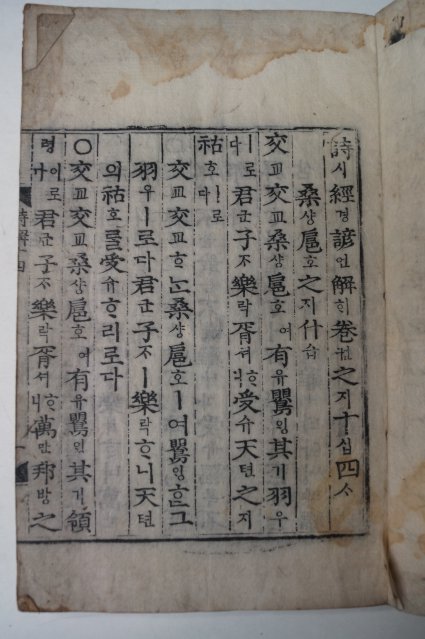 詩시經경諺언解ᄒᆡ卷권之지十십四ᄉᆞ
桑상扈호之지什습
交교交교桑상扈호여有유鸎ᅌᅵᆼ其기羽우
ㅣ로다君군子ᄌᆞ樂락胥셔ᄒᆞ니受슈天텬之지
祜호ㅣ로다
交교交교ᄒᆞᄂᆞᆫ桑상扈호ㅣ여鸎ᅌᅵᆼᄒᆞᆫ그
羽우ㅣ로다君군子ᄌᆞㅣ樂락ᄒᆞ니天텬
의祜호ᄅᆞᆯ受슈ᄒᆞ리로다
○交교交교桑상扈호여有유鸎ᅌᅵᆼ其기領
령이로다君군子ᄌᆞ樂락胥셔ᄒᆞ니萬만邦방之